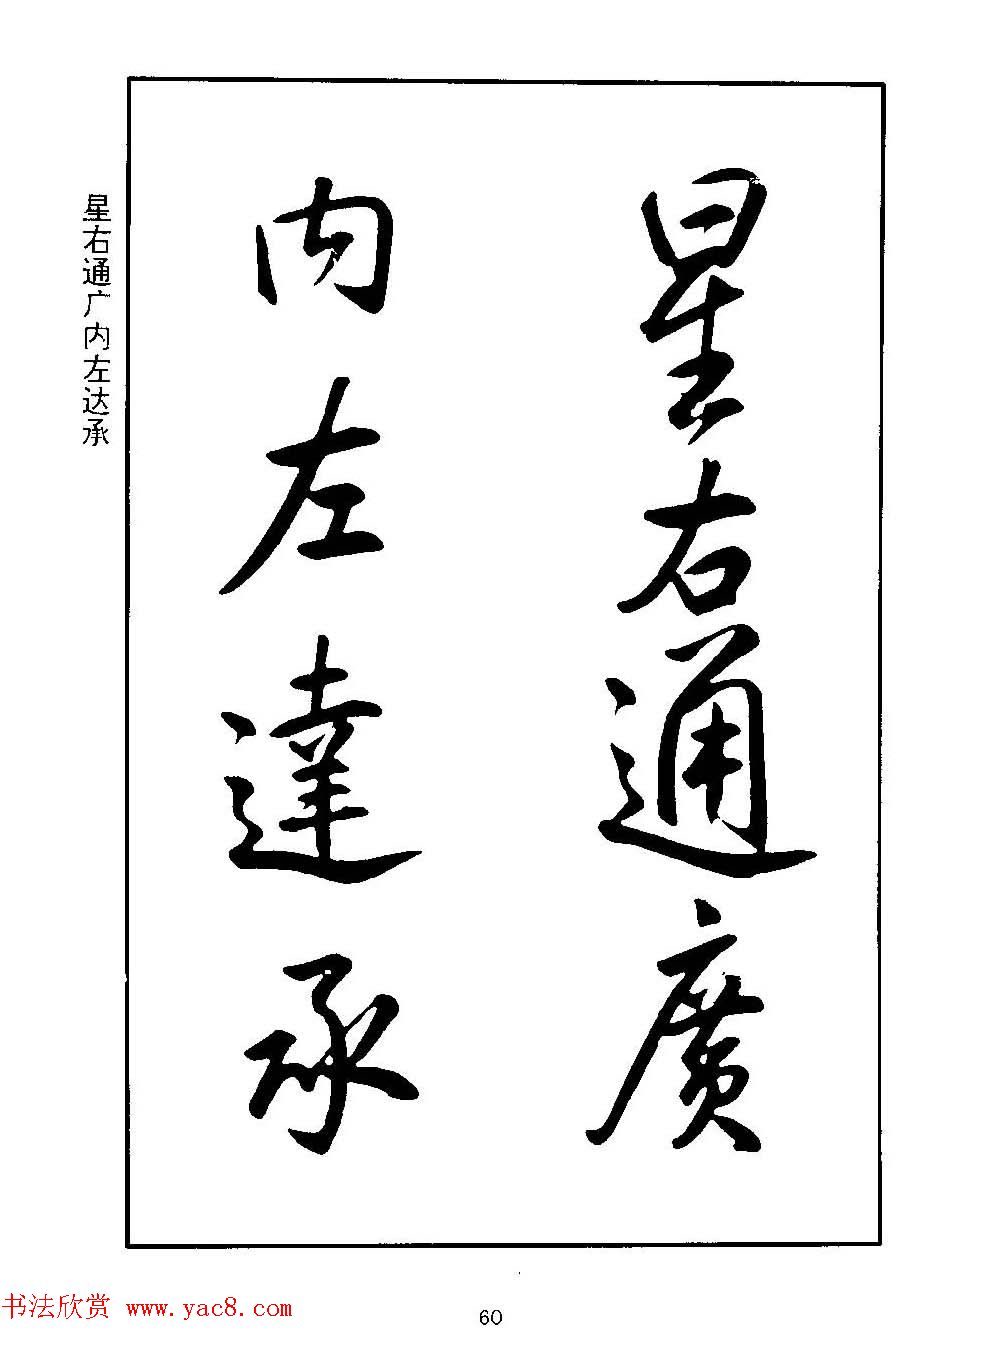 星右通廣
内左達承
星右通广内左达承
书法欣赏 www.yac8.com
60